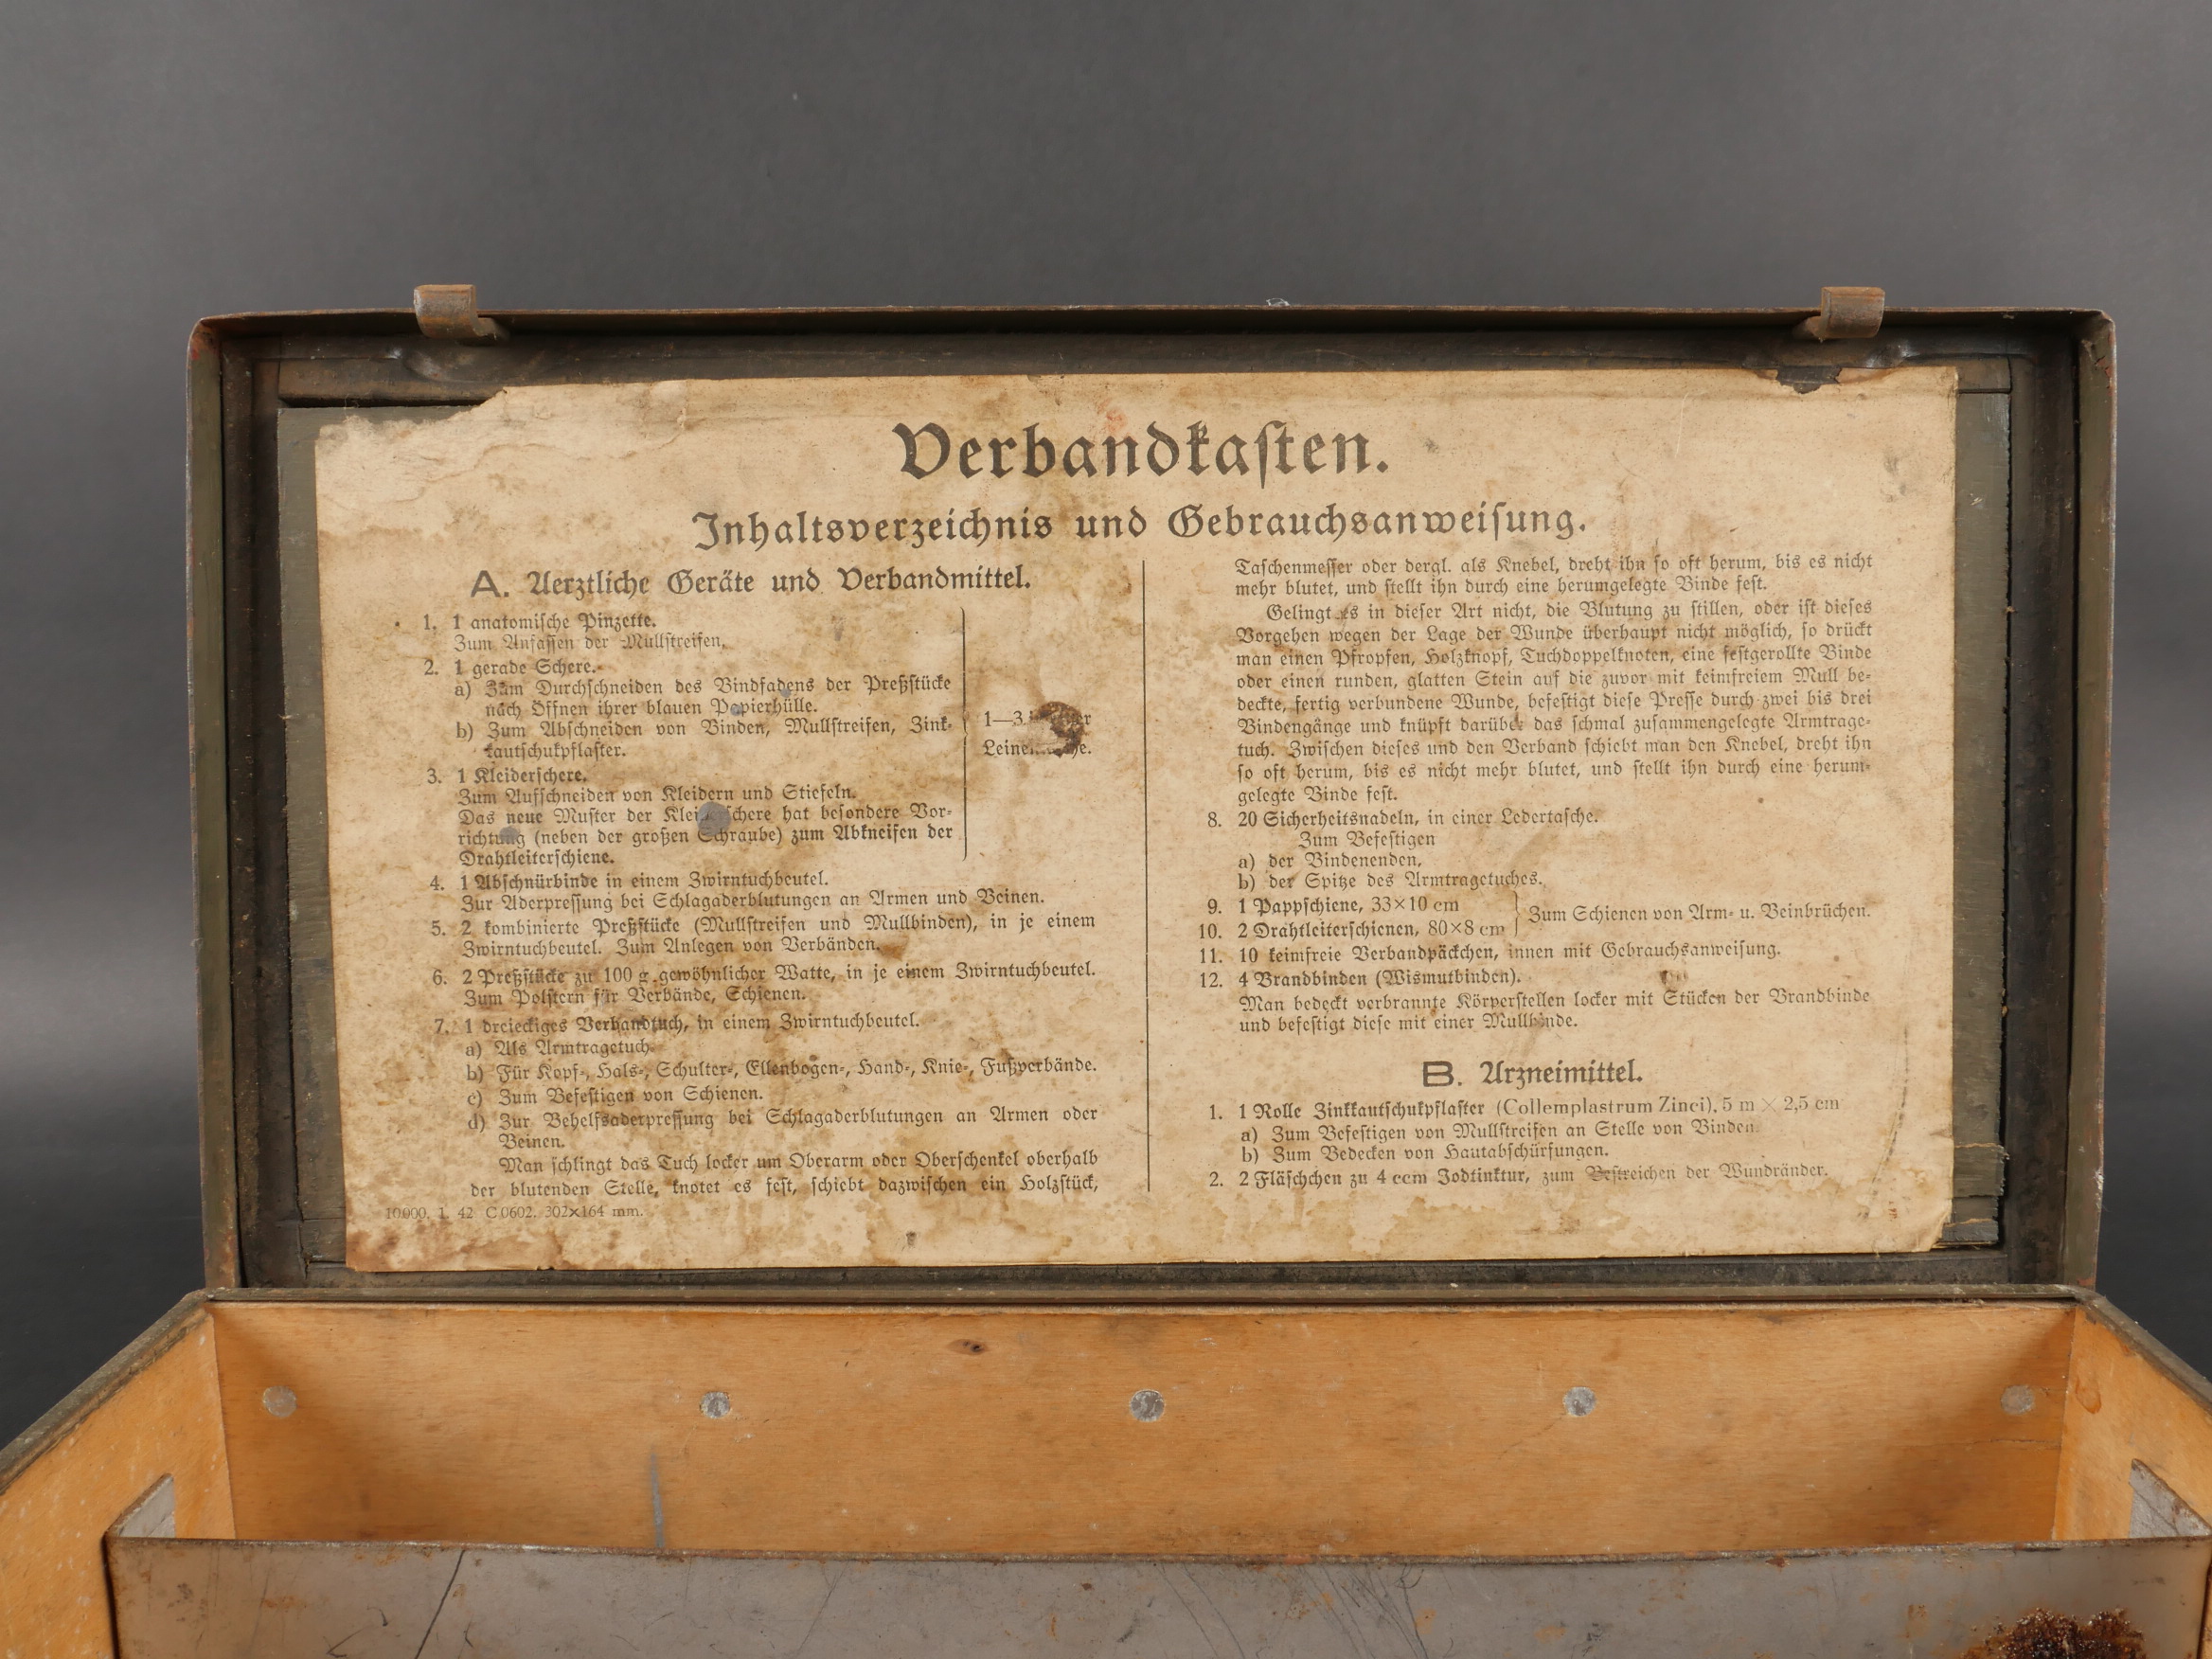 Verbandkasten.
Inhaltsverzeichnis und Gebrauchsanweisung.
A. Aerztliche Geräte und Verbandmittel.
1. 1 anatomische Pinzette.
Zum Anfassen der Mullstreifen.
2. 1 gerade Schere.
a) Zum Durchschneiden des Bindfadens der Preßstücke
nach Öffnen ihrer blauen Papierhülle.
b) Zum Abschneiden von Binden, Mullstreifen, Zink-
kautschukpflaster.
3. 1 Kleiderschere.
Zum Aufschneiden von Kleidern und Stiefeln.
Das neue Muster der Kleiderschere hat besondere Vor-
richtung (neben der großen Schraube) zum Abkneifen der
Drahtleiterschiene.
1—3
4. 1 Abschnürbinde in einem Zwirntuchbeutel.
Zur Aderpressung bei Schlagaderblutungen an Armen und Beinen.
5. 2 kombinierte Preßstücke (Mullstreifen und Mullbinden), in je einem
Zwirntuchbeutel. Zum Anlegen von Verbänden.
6. 2 Preßstücke zu 100 g gewöhnlicher Watte, in je einem Zwirntuchbeutel.
Zum Polstern für Verbände, Schienen.
7. 1 dreieckiges Verbandtuch, in einem Zwirntuchbeutel.
a) Als Armtragetuch.
b) Für Kopf-, Hals-, Schulter-, Ellenbogen-, Hand-, Knie-, Fußverbände.
c) Zum Befestigen von Schienen.
d) Zur Behelfsaderpressung bei Schlagaderblutungen an Armen oder
Beinen.
Man schlingt das Tuch locker um Oberarm oder Oberschenkel oberhalb
der blutenden Stelle, knotet es fest, schiebt dazwischen ein Holzstück,
10000. 1. 42 C 0602. 302×164 mm.
Taschenmesser oder dergl. als Knebel, dreht ihn so oft herum, bis es nicht
mehr blutet, und stellt ihn durch eine herumgelegte Binde fest.
Gelingt es in dieser Art nicht, die Blutung zu stillen, oder ist dieses
Vorgehen wegen der Lage der Wunde überhaupt nicht möglich, so drückt
man einen Pfropfen, Holzknopf, Tuchdoppelknoten, eine festgerollte Binde
oder einen runden, glatten Stein auf die zuvor mit keimfreiem Mull be-
deckte, fertig verbundene Wunde, befestigt diese Presse durch zwei bis drei
Bindengänge und knüpft darüber das schmal zusammengelegte Armtrage-
tuch. Zwischen dieses und den Verband schiebt man den Knebel, dreht ihn
so oft herum, bis es nicht mehr blutet, und stellt ihn durch eine herum-
gelegte Binde fest.
8. 20 Sicherheitsnadeln, in einer Ledertasche.
Zum Befestigen
a) der Bindenenden,
b) der Spitze des Armtragetuches.
9. 1 Pappschiene, 33×10 cm
10. 2 Drahtleiterschienen, 80×8 cm
Zum Schienen von Arm- u. Beinbrüchen.
11. 10 keimfreie Verbandpäckchen, innen mit Gebrauchsanweisung.
12. 4 Brandbinden (Wismutbinden).
Man bedeckt verbrannte Körperstellen locker mit Stücken der Brandbinde
und befestigt diese mit einer Mullbinde.
B. Arzneimittel.
1. 1 Rolle Zinkkautschukpflaster (Collemplastrum Zinci), 5 m × 2,5 cm
a) Zum Befestigen von Mullstreifen an Stelle von Binden.
b) Zum Bedecken von Hautabschürfungen.
2. 2 Fläschchen zu 4 ccm Jodtinktur, zum Bestreichen der Wundränder.